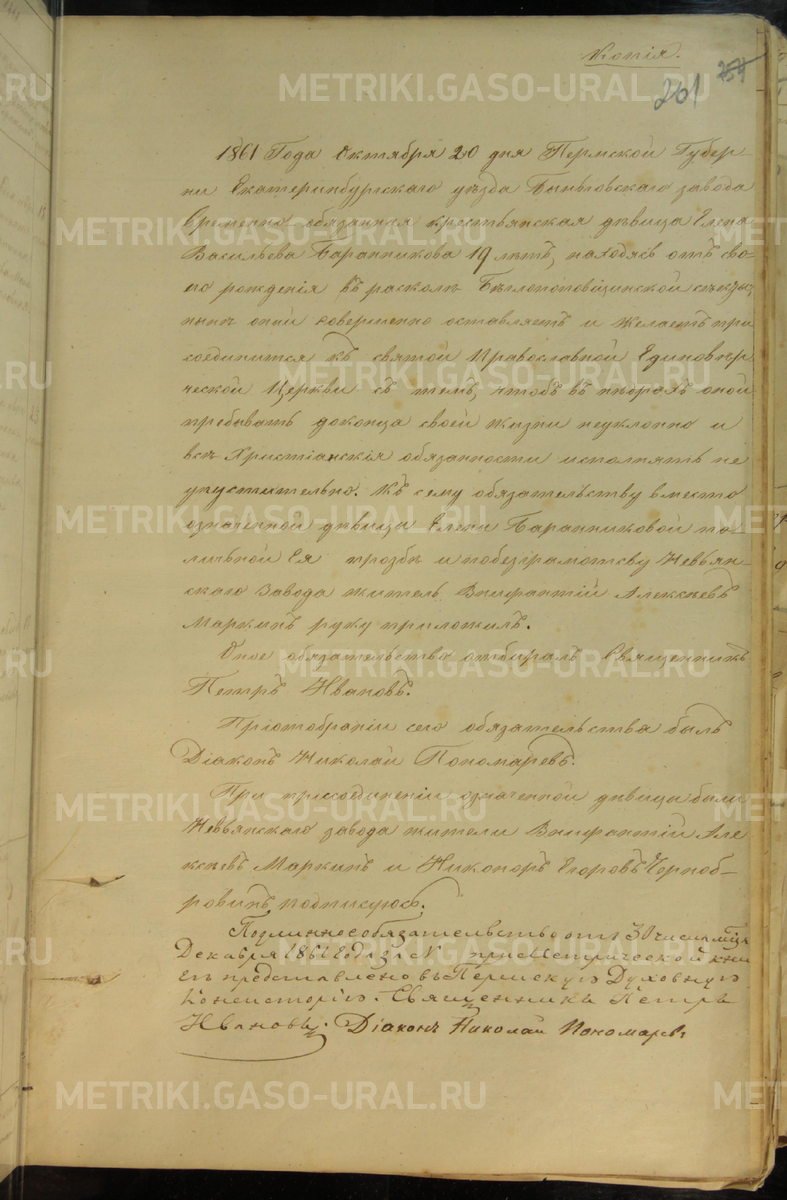 Копія.
261 254
1861 Года Октября 20 дня Пермской Губер-
ни Екатеринбургскаго уѣзда Быньговскаго завода
Временно-обязанная крестьянская дѣвица Елена
Васильева Баранникова 19 лѣтъ, находясь отъ сво-
его рожденія въ расколѣ Бѣглопоповщинской секты,
нынѣ оный совершенно оставляетъ и желаетъ при
соединится къ святой Православной Единовѣр
ческой Церкви съ темъ, чтобъ въ нѣдрахъ оной
пребывать доконца своей жизни неуклонно и
всѣ Христіанскія обязанности исполнять не
упустительно. Къ сему обязательству вместо
означенной дѣвицы Елены Баранниковой по
личьной Ея прозбѣ и побезграмотсву Невьян-
скаго Завода житель Внифантій Алексѣевъ
Маркинъ руку приложилъ.
Оное обязательство отбиралъ Священникъ
Петръ Ивановъ.
Приотобраніи сего обязательства былъ
Діаконъ Николай Пономаревъ.
При присоединеніи означенной дѣвицы были
Невьянскаго завода жители Внифантій Але
ксѣевъ Маркинъ и Никоноръ Егоровъ Черноб-
ровинъ подписуюсь.
Подлинное обязательство отъ 30 числа мѣца
Декабря 1861 года за N при Метрической кни
гѣ представлено въ Пермскую Духовную
Консисторію. Священникъ Петръ
Ивановъ. Діаконъ Николай Пономаревъ
METRIKI.GASO-URAL.RU